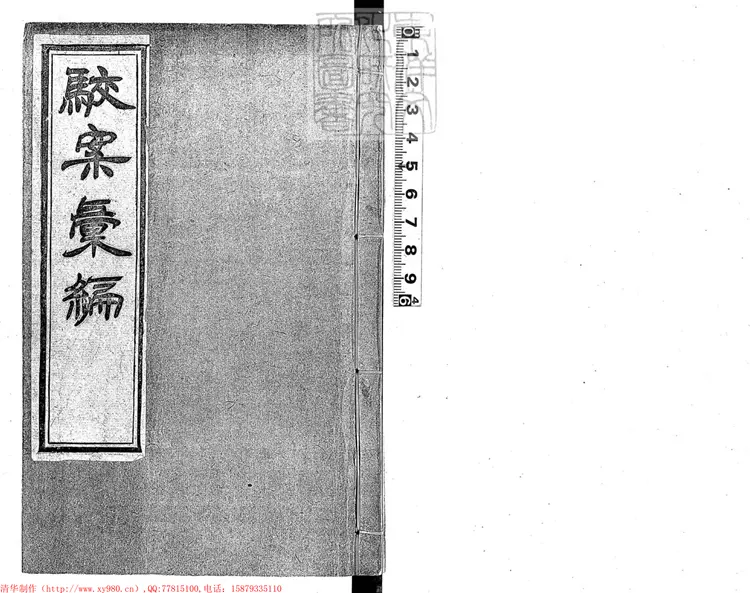 駮案彙編
0 1 2 3 4 5 6 7 8 9
清华制作（http://www.xy980.cn）,QQ:77815100,电话：15879335110